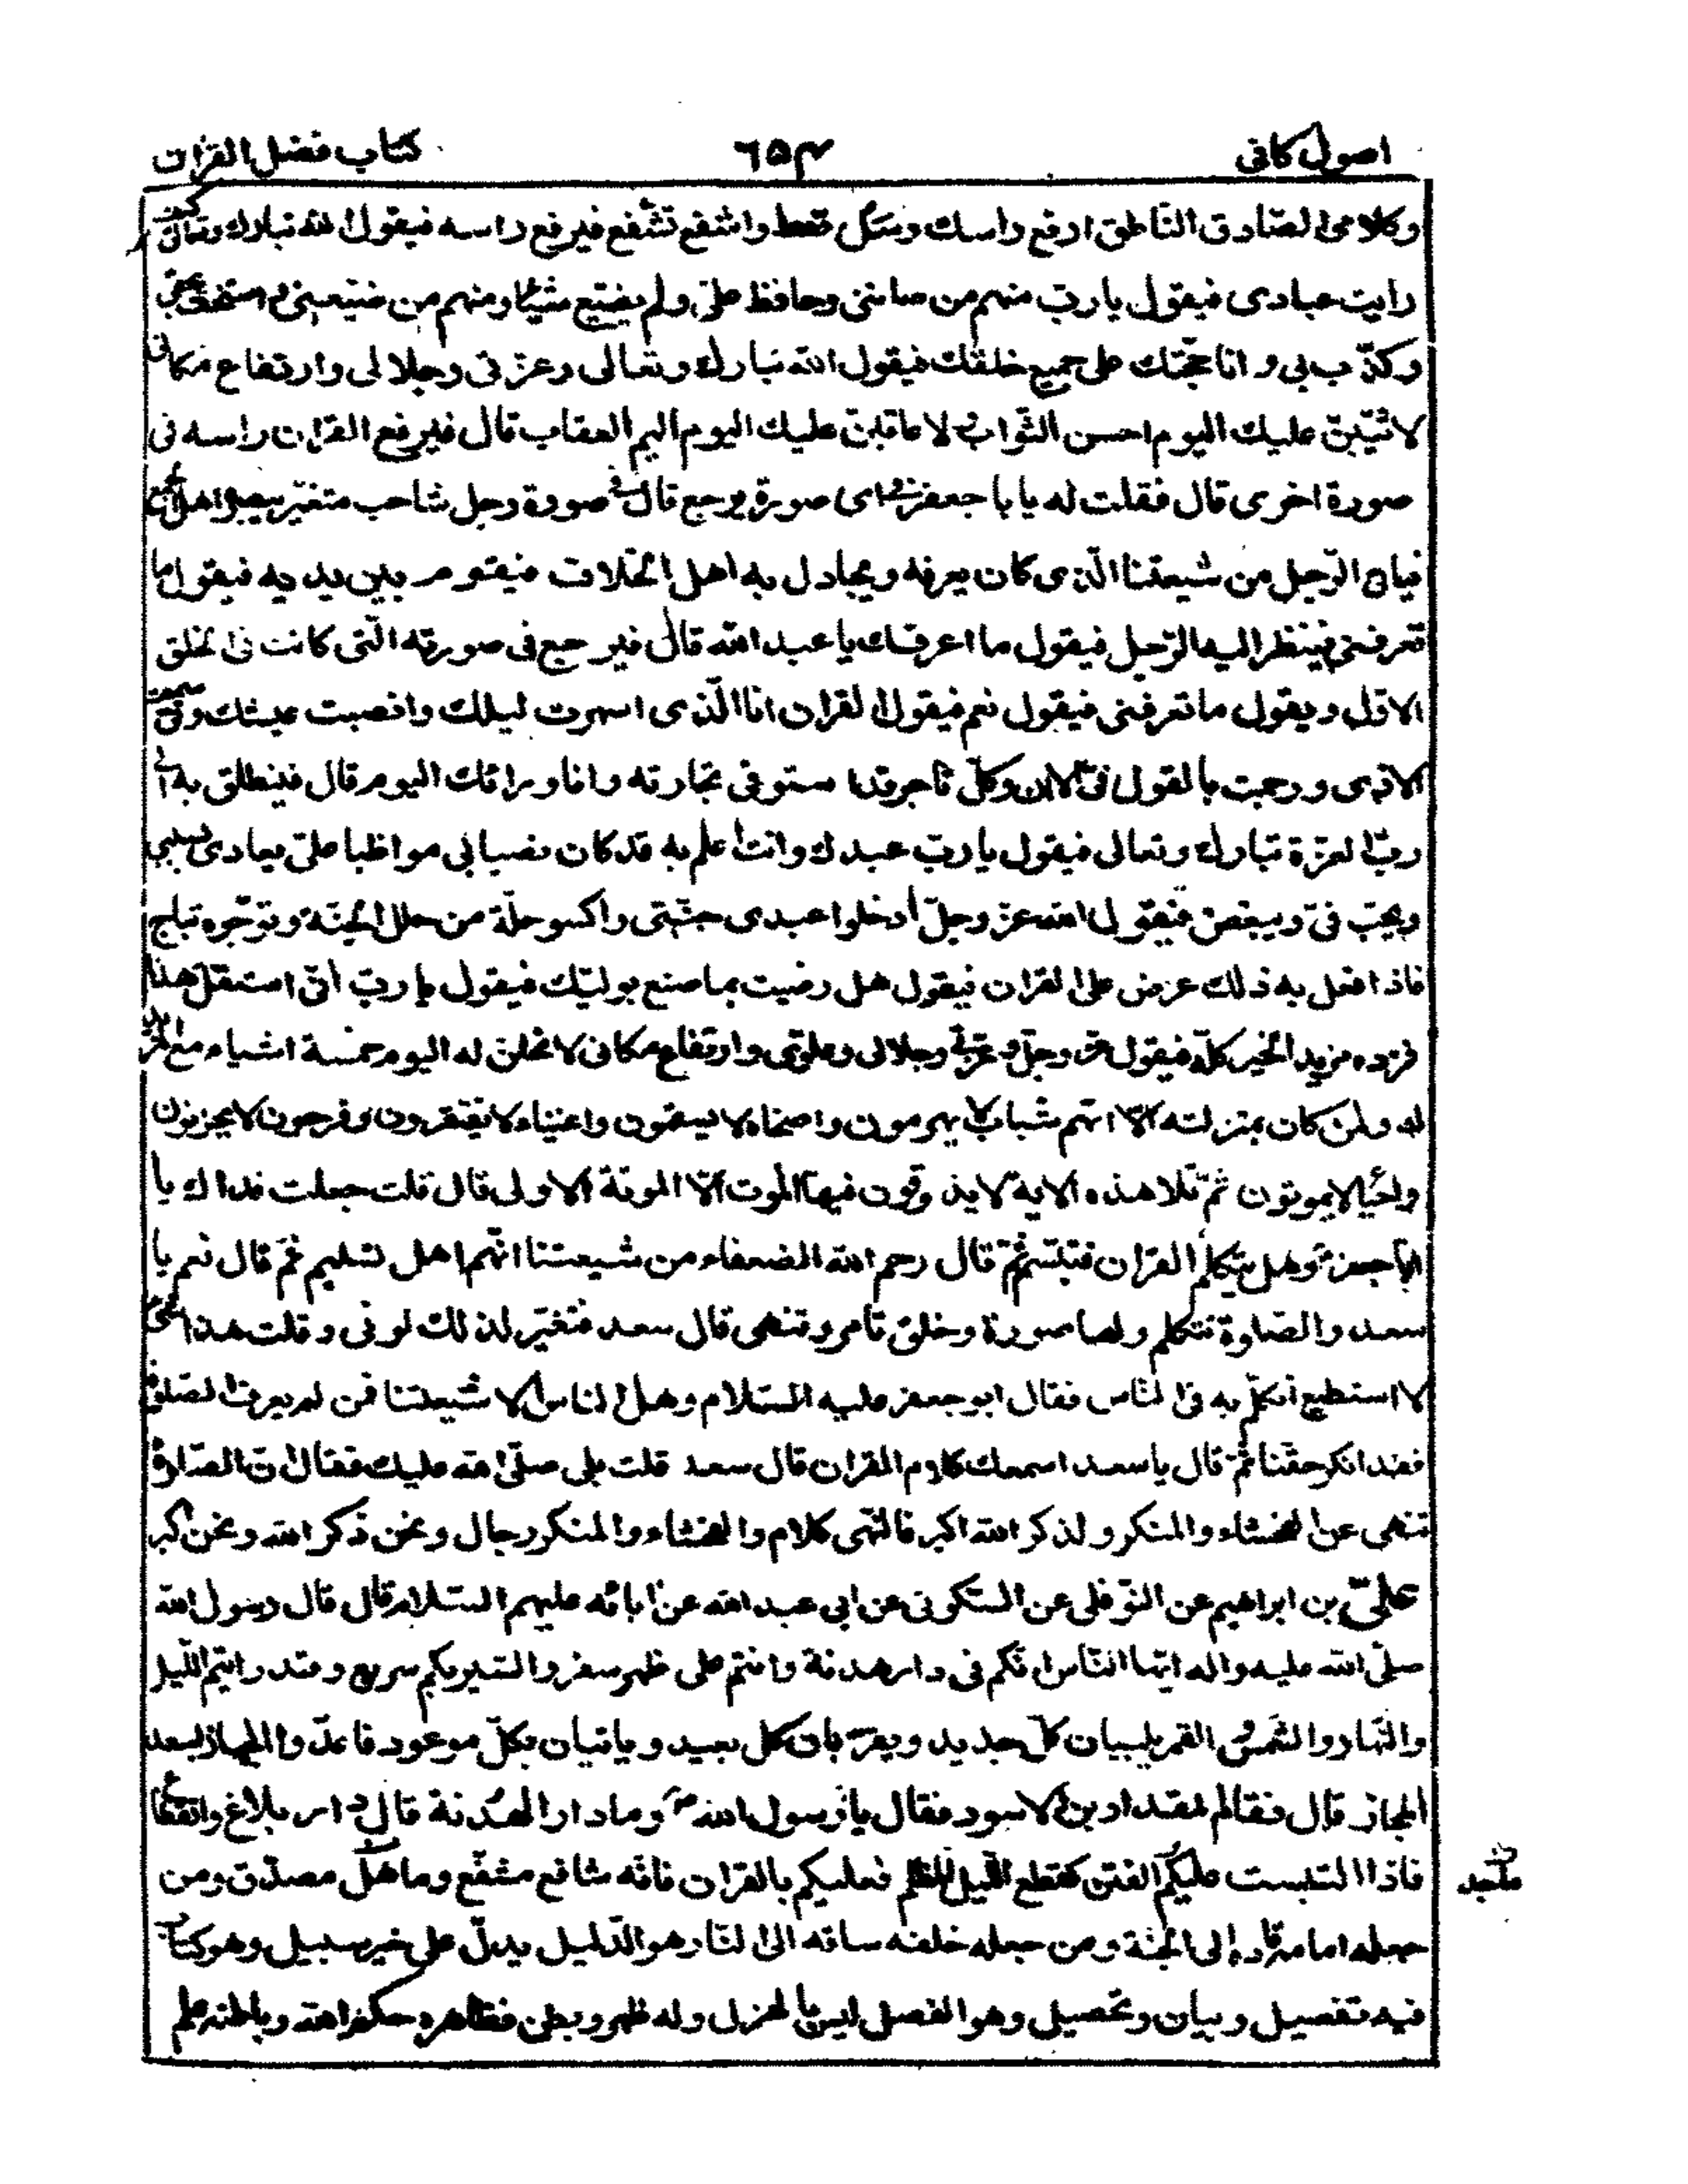 اصول كافى ٦٥٣ كتاب فضل القرآن
وكلامى الصّادق النّاطق ارفع راسك وسَل تعط واشفع تشّفع فيرفع راسه فيقول الله تبارك وتعالى كيف
رايت عبادى فيقول يا ربّ منهم من صاننى وحافظ علىّ ولم يضيّع شيئًا ومنهم من ضيّعنى واستخفّ بحقّى
وكذّب بى وانا حجّتك على جميع خلقك فيقول الله تبارك وتعالى وعزتى وجلالى وارتفاع مكانى
لاثيبنّ عليك اليوم احسن الثّواب ولاعاقبنّ عليك اليوم اليم العقاب قال فيرفع القران راسه فى
صورة اخرى قال فقلت له يا با جعفر فى اى صورة يرجع قال فى صورة رجل شاحب متغيّر يبصره اهل الجمع
فياتى الرّجل من شيعتنا الّذى كان يعرفه ويجادل به اهل الخلاف فيقوم بين يديه فيقول ما
تعرفنى فينظر اليه الرّجل فيقول ما اعرفك يا عبد الله قال فيرجع فى صورته الّتى كانت فى الخلق
الاوّل ويقول ما تعرفنى فيقول نعم فيقول القران انا الّذى اسهرت ليلك وانصبت عيشك وفىّ سمعت
الاذى ورجمت بالقول فىّ الا وان وكلّ تاجر قد استوفى تجارته وانا وراءك اليوم قال فينطلق به الى
ربّ العزّة تبارك وتعالى فيقول يا ربّ عبدك وانت اعلم به قد كان نصبا بى مواظبا علىّ يعادى بسببى
ويحبّ فىّ ويبغض فيقول الله عزّ وجلّ أدخلوا عبدى جنّتى واكسوه حلّة من حلل الجنّة وتوّجوه بتاج
فاذا فعل به ذلك عرض على القران فيقول هل رضيت بما صنع بوليّك فيقول يا ربّ انّى استقلّ هذا له
فزده مزيد الخير كلّه فيقول عزّ وجلّ وعزّتى وجلالى وعلوّى وارتفاع مكانى لانحلنّ له اليوم خمسة اشياء مع المزيد
له ولمن كان بمنزلته الا انّهم شباب لا يهرمون واصحّاء لا يسقمون واغنياء لا يفتقرون وفرحون لا يحزنون
واحياء لا يموتون ثمّ تلا هذه الاية لا يذوقون فيها الموت الّا الموتة الاولى قال قلت جعلت فداك يا
ابا جعفر وهل يتكلّم القران فتبسّم ثمّ قال رحم الله الضعفاء من شيعتنا انّهم اهل تسليم ثمّ قال نعم يا
سعد والصّلوة تتكلم ولها صورة وخلق تامر وتنهى قال سعد فتغيّر لذلك لونى وقلت هذا شىء
لا استطيع اتكلّم به فى النّاس فقال ابو جعفر عليه السّلام وهل الناس الا شيعتنا فمن لم يعرف الصّلوة
فقد انكر حقّنا ثمّ قال يا سعد اسمعك كلام القران قال سعد قلت بلى صلّى الله عليك فقال انّ الصّلوة
تنهى عن الفحشاء والمنكر ولذكر الله اكبر فالنّهى كلام والفحشاء والمنكر رجال ونحن ذكر الله ونحن اكبر
علىّ بن ابراهيم عن النّوفلى عن السّكونى عن ابى عبد الله عن ابائه عليهم السّلام قال قال رسول الله
صلّى الله عليه واله ايّها النّاس انّكم فى دار هدنة وانتم على ظهر سفر والسّير بكم سريع وقد رايتم اللّيل
والنّهار والشّمس والقمر يبليان كلّ جديد ويقرّبان كل بعيد وياتيان بكلّ موعود فاعدّوا الجهاز لبعد
المجاز قال فقام المقداد بن الاسود فقال يا رسول الله وما دار الهُدنة قال دار بلاغ وانقطاع
فاذا التبست عليكم الفتن كقطع اللّيل المظلم فعليكم بالقران فانّه شافع مشفّع وماحل مصدّق ومن
جعله امامه قاده إلى الجنّة ومن جعله خلفه ساقه الى النّار هو الدّليل يدلّ على خير سبيل وهو كتاب
فيه تفصيل وبيان وتحصيل وهو الفصل ليس بالهزل وله ظهر وبطن فظاهره حكم الله وباطنه علم